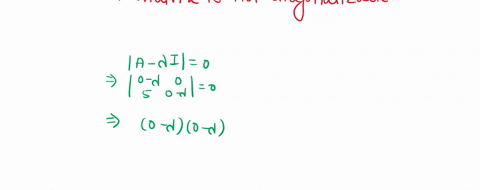 is not diagonalizable
|A-λI|=0
⇒ |0-λ 0
5 0-λ|=0
⇒ (0-λ)(0-λ)